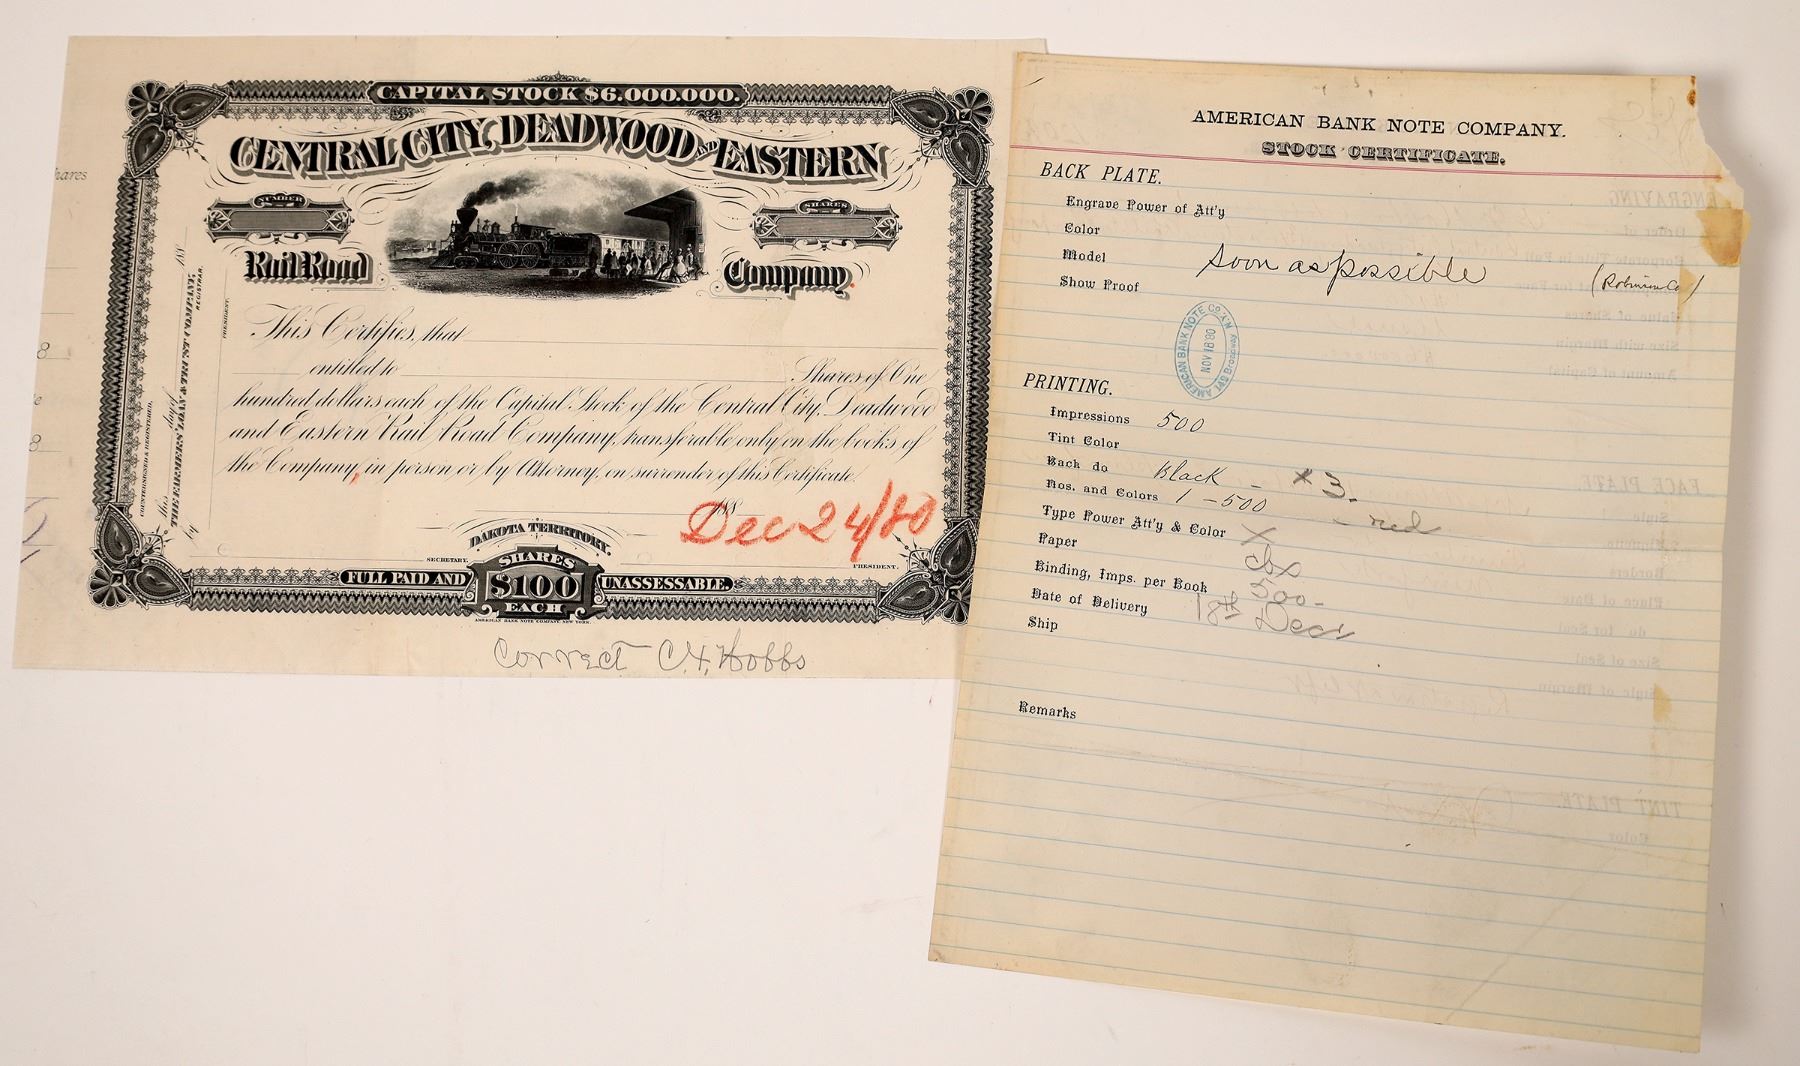 CAPITAL STOCK $6.000.000.
CENTRAL CITY, DEADWOOD AND EASTERN
NUMBER
SHARES
Rail Road
Company.
This Certifies, that
entitled to Shares of One
hundred dollars each of the Capital Stock of the Central City, Deadwood
and Eastern Rail Road Company, transferable only on the books of
the Company, in person or by Attorney, on surrender of this Certificate.
188
Dec 24/80
DAKOTA TERRITORY.
SECRETARY.
PRESIDENT.
FULL PAID AND
SHARES
$100
EACH
UNASSESSABLE.
AMERICAN BANK NOTE COMPANY, NEW YORK.
Correct C.H. Hobbs
COUNTERSIGNED & REGISTERED,
this day of 188
THE FARMERS' LOAN & TRUST COMPANY,
REGISTRAR.
by
PRESIDENT.
hares
8
e
8
AMERICAN BANK NOTE COMPANY.
STOCK CERTIFICATE.
BACK PLATE.
Engrave Power of Att'y
Color
Model
Show Proof
Soon as possible
(Robinson Co)
AMERICAN BANK NOTE CO. N.Y.
NOV 18 80
142 Broadway
PRINTING.
Impressions 500
Tint Color
Back do Black - * 3.
Nos. and Colors 1 - 500 - red
Type Power Att'y & Color X
Paper cbx
Binding, Imps. per Book 500-
Date of Delivery 18th Decr
Ship
Remarks